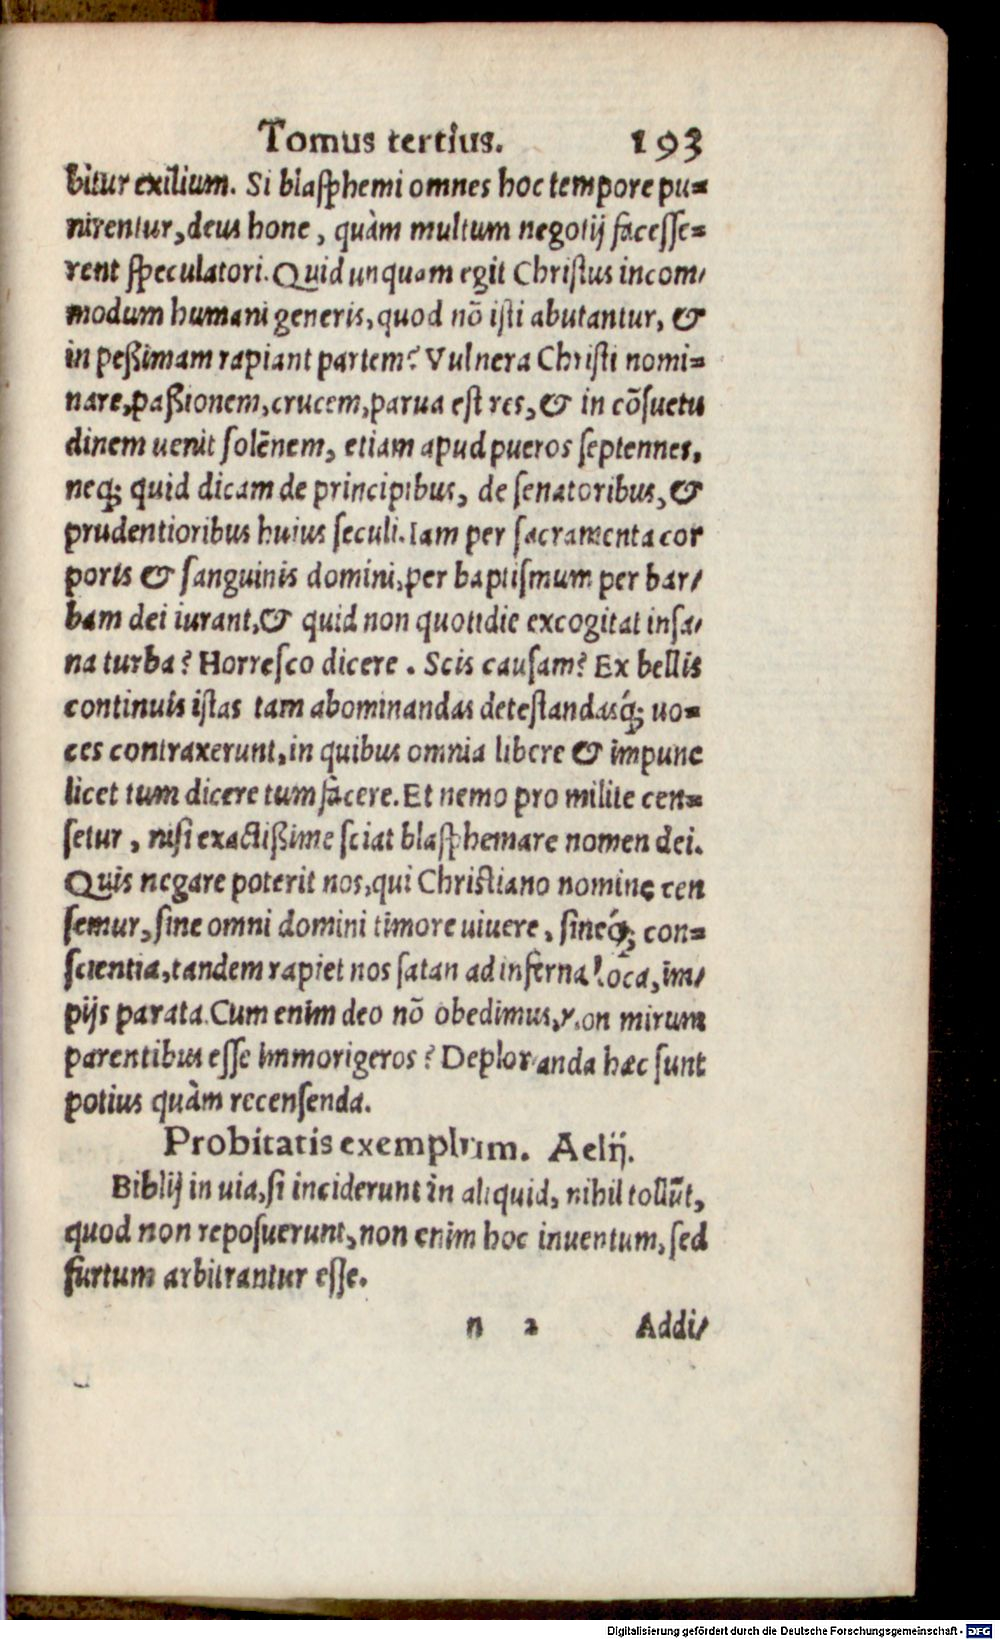 Tomus tertius. 193
bitur exilium. Si blasphemi omnes hoc tempore pu=
nirentur, deus bone, quàm multum negotij facesse=
rent speculatori. Quid unquam egit Christus incom/
modum humani generis, quod nõ isti abutantur, &
in peßimam rapiant partem? Vulnera Christi nomi=
nare, paßionem, crucem, parua est res, & in cõsuetu
dinem uenit solẽnem, etiam apud pueros septennes,
neq; quid dicam de principibus, de senatoribus, &
prudentioribus huius seculi. Iam per sacramenta cor
poris & sanguinis domini, per baptismum per bar/
bam dei iurant, & quid non quotidie excogitat insa/
na turba? Horresco dicere. Scis causam? Ex bellis
continuis istas tam abominandas detestandasq́; uo=
ces contraxerunt, in quibus omnia libere & impune
licet tum dicere tum facere. Et nemo pro milite cen=
setur, nisi exactißime sciat blasphemare nomen dei.
Quis negare poterit nos, qui Christiano nomine cen
semur, sine omni domini timore uiuere, sineq́; con=
scientia, tandem rapiet nos satan ad inferna loca, im/
pijs parata. Cum enim deo nõ obedimus, non mirum
parentibus esse immorigeros? Deploranda hæc sunt
potius quàm recensenda.
Probitatis exemplum. Aelij.
Biblij in uia, si inciderunt in aliquid, nihil tollũt,
quod non reposuerunt, non enim hoc inuentum, sed
furtum arbitrantur esse.
n 2 Addi/
Digitalisierung gefördert durch die Deutsche Forschungsgemeinschaft - DFG